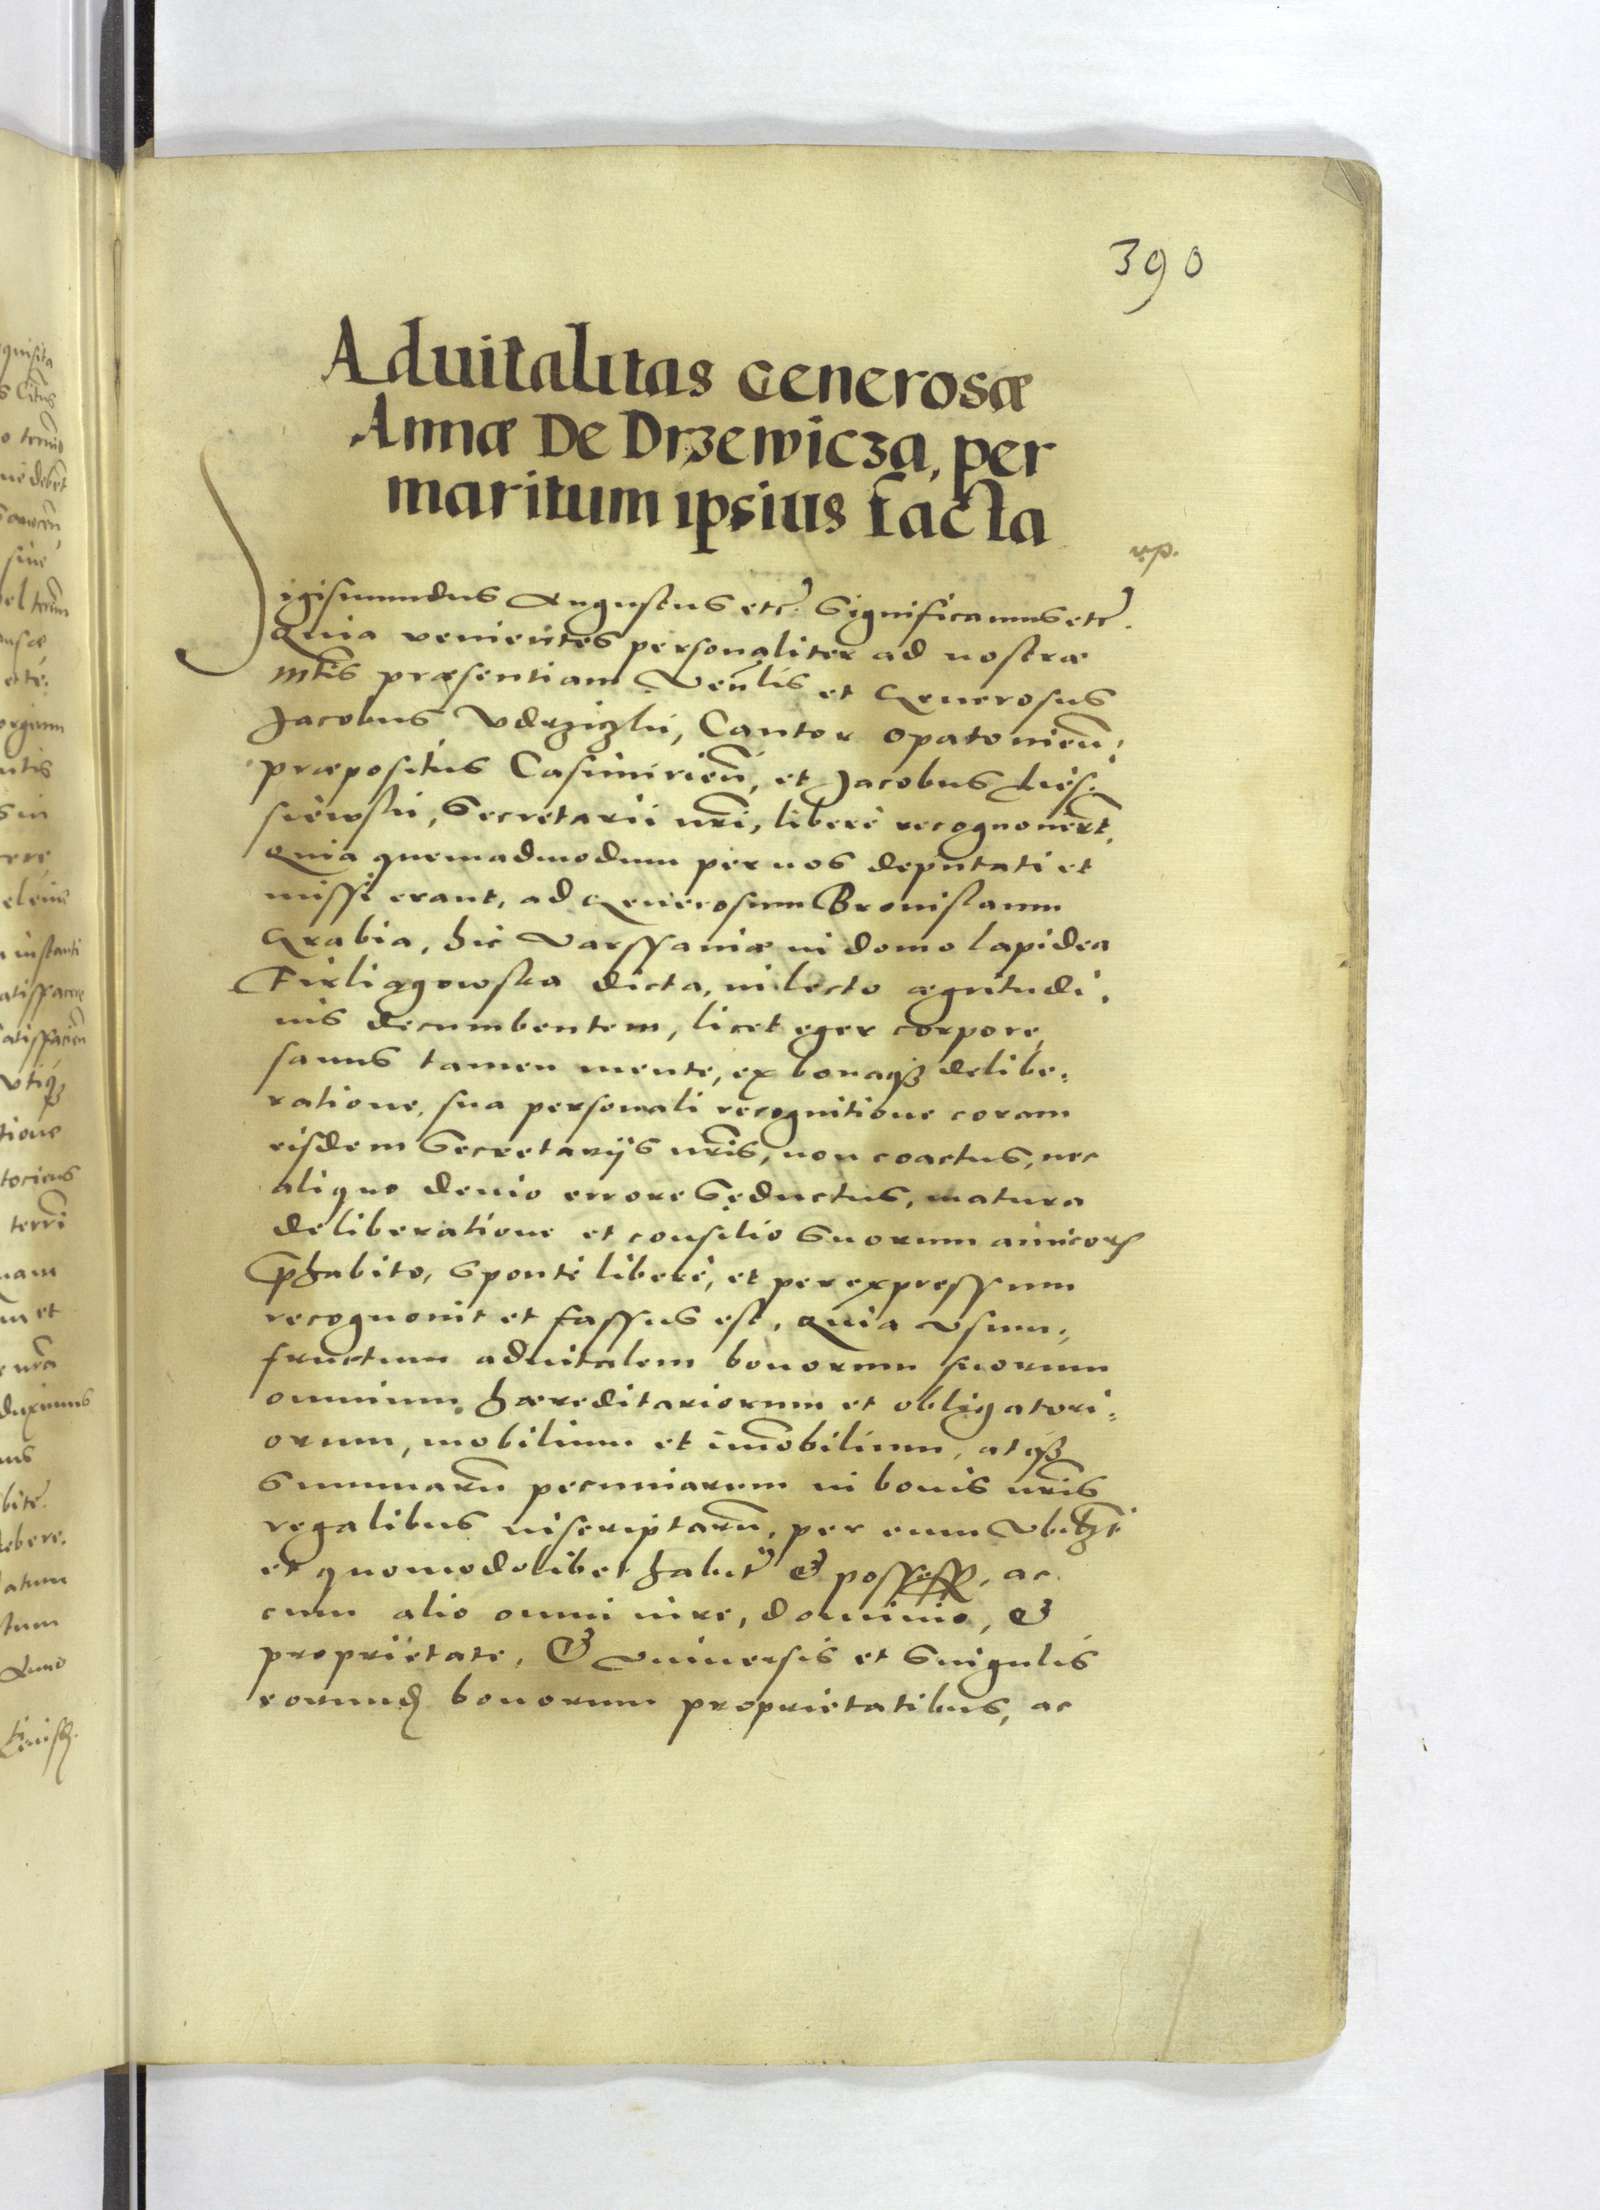 390
Advitalitas Generosæ
Annæ De Drzewicza, per
maritum ipsius facta
Sigismundus Augustus etc. Significamus etc.
Quia venientes personaliter ad nostræ
mtis præsentiam Venlis et Generosus
Jacobus Vdrziczki, Cantor Opatouien:
præpositus Casimirien, et Jacobus
Secretarii nri, libere recognouert,
Quia quemadmodum per nos deputati et
missi erant, ad Generosum Bronislaum
Grabia, hic Varssauiæ in domo lapidea
dicta, in lecto ægritudi,
nis decumbentem, licet eger corpore,
sanus tamen mente, ex bonaqz delibe,
ratione, sua personali recognitione coram
eisdem Secretarijs nris, non coactus, nec
aliquo deuio errore Seductus, matura
deliberatione et consilio Suorum amicor
phabito, Sponte libere, et per expressum
recognouit et fassus est, Quia Vsum,
fructum aduitalem bonorum suorum
omnium, hæreditariorum et obligatori,
orum, mobilium et imobilium, atqz
Summaru pecuniarum in bonis nris
regalibus inscriptaru, per eum
et quomodolibet habit & possess, ac
cum alio omni iure, dominio, &
proprietate, & Vniuersis et Singulis
eorund bonorum proprietatibus, ac